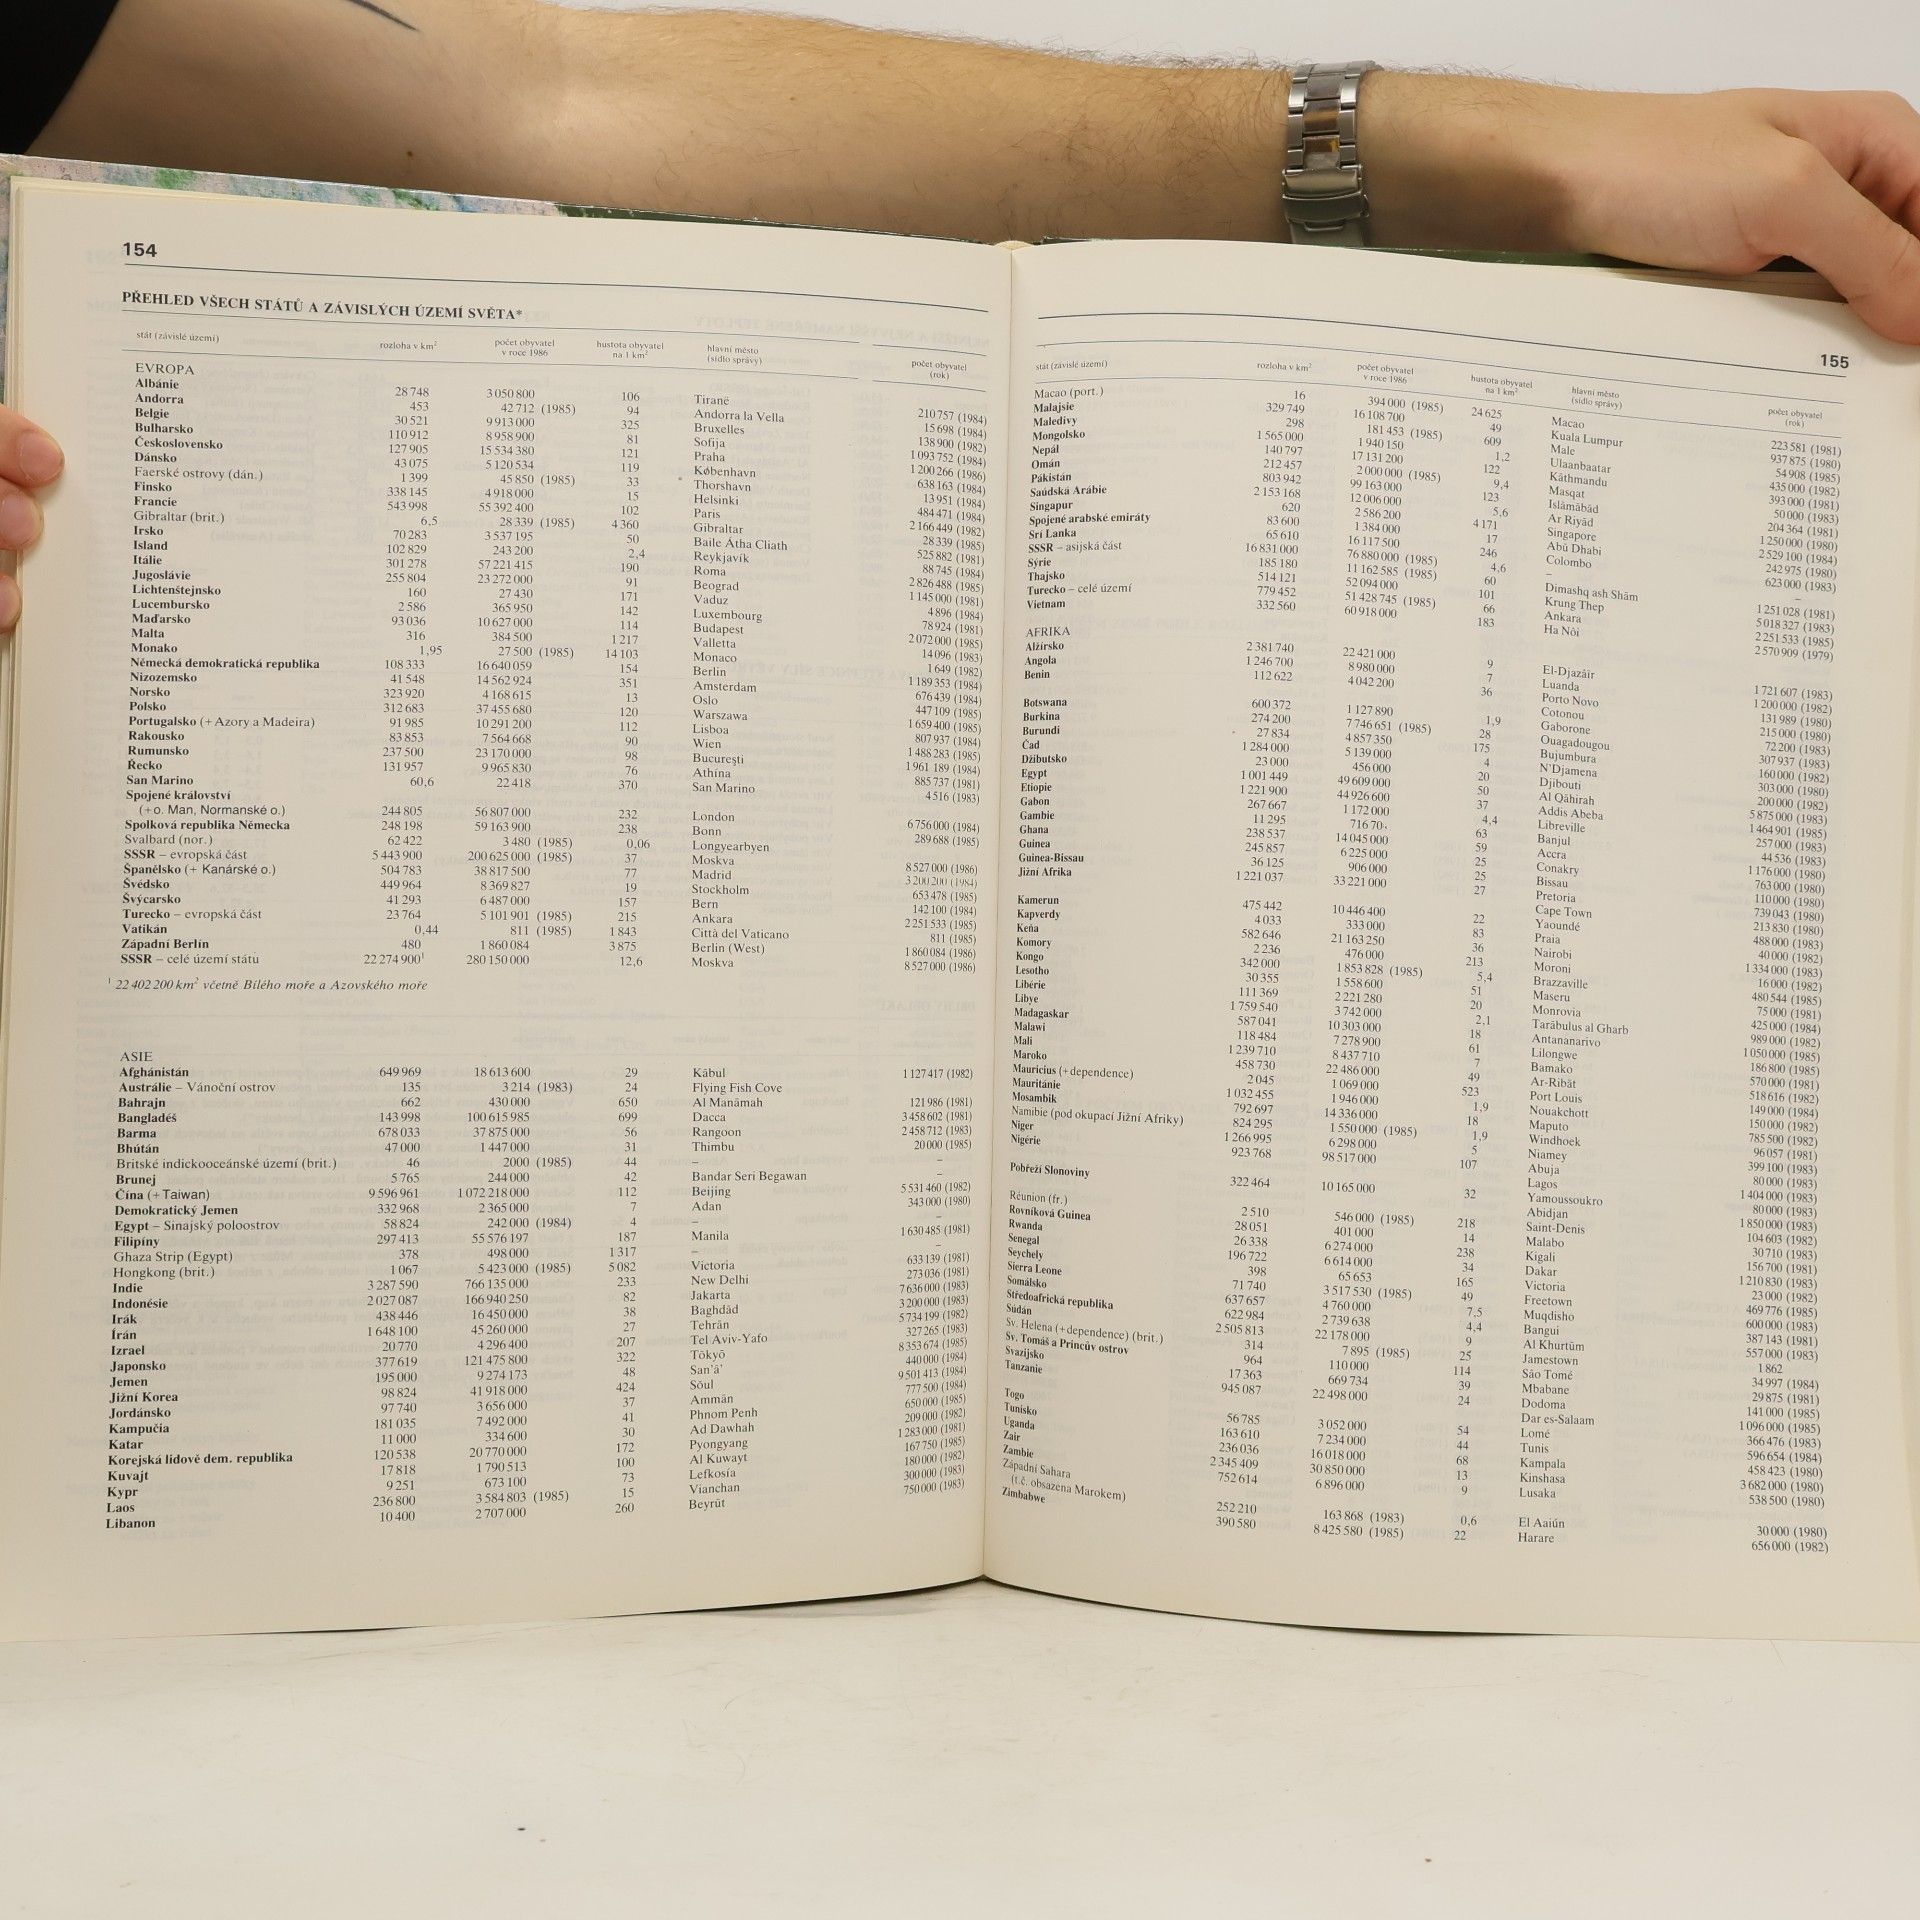 154
PŘEHLED VŠECH STÁTŮ A ZÁVISLÝCH ÚZEMÍ SVĚTA*
stát (závislé území) rozloha v km² počet obyvatel v roce 1986 hustota obyvatel na 1 km² hlavní město (sídlo správy) počet obyvatel (rok)
EVROPA
Albánie 28 748 3 050 800 106 Tiranë 210 757 (1984)
Andorra 453 42 712 (1985) 94 Andorra la Vella 15 698 (1984)
Belgie 30 521 9 913 000 325 Bruxelles 138 900 (1982)
Bulharsko 110 912 8 958 900 81 Sofija 1 093 752 (1984)
Československo 127 905 15 534 380 121 Praha 1 200 266 (1986)
Dánsko 43 075 5 120 534 119 København 638 163 (1984)
Faerské ostrovy (dán.) 1 399 45 850 (1985) 33 Thorshavn 13 951 (1984)
Finsko 338 145 4 918 000 15 Helsinki 484 471 (1984)
Francie 543 998 55 392 400 102 Paris 2 166 449 (1982)
Gibraltar (brit.) 6,5 28 339 (1985) 4 360 Gibraltar 28 339 (1985)
Irsko 70 283 3 537 195 50 Baile Átha Cliath 525 882 (1981)
Island 102 829 243 200 2,4 Reykjavík 88 745 (1984)
Itálie 301 278 57 221 415 190 Roma 2 826 488 (1985)
Jugoslávie 255 804 23 272 000 91 Beograd 1 145 000 (1981)
Lichtenštejnsko 160 27 430 171 Vaduz 4 896 (1984)
Lucembursko 2 586 365 950 142 Luxembourg 78 924 (1981)
Maďarsko 93 036 10 627 000 114 Budapest 2 072 000 (1985)
Malta 316 384 500 1 217 Valletta 14 096 (1983)
Monako 1,95 27 500 (1985) 14 103 Monaco 1 649 (1982)
Německá demokratická republika 108 333 16 640 059 154 Berlin 1 189 353 (1984)
Nizozemsko 41 548 14 562 924 351 Amsterdam 676 439 (1984)
Norsko 323 920 4 168 615 13 Oslo 447 109 (1985)
Polsko 312 683 37 455 680 120 Warszawa 1 659 400 (1985)
Portugalsko (+ Azory a Madeira) 91 985 10 291 200 112 Lisboa 807 937 (1984)
Rakousko 83 853 7 564 668 90 Wien 1 488 283 (1985)
Rumunsko 237 500 23 170 000 98 Bucureşti 1 961 189 (1984)
Řecko 131 957 9 965 830 76 Athína 885 737 (1981)
San Marino 60,6 22 418 370 San Marino 4 516 (1983)
Spojené království
(+ o. Man, Normanské o.) 244 805 56 807 000 232 London 6 756 000 (1984)
Spolková republika Německa 248 198 59 163 900 238 Bonn 289 688 (1985)
Svalbard (nor.) 62 422 3 480 (1985) 0,06 Longyearbyen
SSSR – evropská část 5 443 900 200 625 000 (1985) 37 Moskva 8 527 000 (1986)
Španělsko (+ Kanárské o.) 504 783 38 817 500 77 Madrid 3 200 200 (1984)
Švédsko 449 964 8 369 827 19 Stockholm 653 478 (1985)
Švýcarsko 41 293 6 487 000 157 Bern 142 100 (1984)
Turecko – evropská část 23 764 5 101 901 (1985) 215 Ankara 2 251 533 (1985)
Vatikán 0,44 811 (1985) 1 843 Città del Vaticano 811 (1985)
Západní Berlín 480 1 860 084 3 875 Berlin (West) 1 860 084 (1986)
SSSR – celé území státu 22 274 900¹ 280 150 000 12,6 Moskva 8 527 000 (1986)
¹ 22 402 200 km² včetně Bílého moře a Azovského moře
ASIE
Afghánistán 649 969 18 613 600 29 Kābul 1 127 417 (1982)
Austrálie – Vánoční ostrov 135 3 214 (1983) 24 Flying Fish Cove
Bahrajn 662 430 000 650 Al Manāmah 121 986 (1981)
Bangladéš 143 998 100 615 985 699 Dacca 3 458 602 (1981)
Barma 678 033 37 875 000 56 Rangoon 2 458 712 (1983)
Bhútán 47 000 1 447 000 31 Thimbu 20 000 (1985)
Britské indickooceánské území (brit.) 46 2000 (1985) 44 – –
Brunej 5 765 244 000 42 Bandar Seri Begawan –
Čína (+ Taiwan) 9 596 961 1 072 218 000 112 Beijing 5 531 460 (1982)
Demokratický Jemen 332 968 2 365 000 7 Adan 343 000 (1980)
Egypt – Sinajský poloostrov 58 824 242 000 (1984) 4 – –
Filipíny 297 413 55 576 197 187 Manila 1 630 485 (1981)
Ghaza Strip (Egypt) 378 498 000 1 317 – –
Hongkong (brit.) 1 067 5 423 000 (1985) 5 082 Victoria 633 139 (1981)
Indie 3 287 590 766 135 000 233 New Delhi 273 036 (1981)
Indonésie 2 027 087 166 940 250 82 Jakarta 7 636 000 (1983)
Irák 438 446 16 450 000 38 Baghdād 3 200 000 (1983)
Írán 1 648 100 45 260 000 27 Tehrān 5 734 199 (1982)
Izrael 20 770 4 296 400 207 Tel Aviv-Yafo 327 265 (1983)
Japonsko 377 619 121 475 800 322 Tōkyō 8 353 674 (1985)
Jemen 195 000 9 274 173 48 San'ā' 440 000 (1984)
Jižní Korea 98 824 41 918 000 424 Sŏul 9 501 413 (1984)
Jordánsko 97 740 3 656 000 37 Ammān 777 500 (1984)
Kampučia 181 035 7 492 000 41 Phnom Penh 650 000 (1985)
Katar 11 000 334 600 30 Ad Dawhah 209 000 (1982)
Korejská lidově dem. republika 120 538 20 770 000 172 Pyongyang 1 283 000 (1981)
Kuvajt 17 818 1 790 513 100 Al Kuwayt 167 750 (1985)
Kypr 9 251 673 100 73 Lefkosía 180 000 (1982)
Laos 236 800 3 584 803 (1985) 15 Vianchan 300 000 (1983)
Libanon 10 400 2 707 000 260 Beyrūt 750 000 (1983)
155
stát (závislé území) rozloha v km² počet obyvatel v roce 1986 hustota obyvatel na 1 km² hlavní město (sídlo správy) počet obyvatel (rok)
Macao (port.) 16 394 000 (1985) 24 625 Macao 223 581 (1981)
Malajsie 329 749 16 108 700 49 Kuala Lumpur 937 875 (1980)
Maledivy 298 181 453 (1985) 609 Male 54 908 (1985)
Mongolsko 1 565 000 1 940 150 1,2 Ulaanbaatar 435 000 (1982)
Nepál 140 797 17 131 200 122 Kāthmandu 393 000 (1981)
Omán 212 457 2 000 000 (1985) 9,4 Masqat 50 000 (1983)
Pákistán 803 942 99 163 000 123 Islāmābād 204 364 (1981)
Saúdská Arábie 2 153 168 12 006 000 5,6 Ar Riyād 1 250 000 (1980)
Singapur 620 2 586 200 4 171 Singapore 2 529 100 (1984)
Spojené arabské emiráty 83 600 1 384 000 17 Abū Dhabi 242 975 (1980)
Srí Lanka 65 610 16 117 500 246 Colombo 623 000 (1983)
SSSR – asijská část 16 831 000 76 880 000 (1985) 4,6 – –
Sýrie 185 180 11 162 585 (1985) 60 Dimashq ash Shām 1 251 028 (1981)
Thajsko 514 121 52 094 000 101 Krung Thep 5 018 327 (1983)
Turecko – celé území 779 452 51 428 745 (1985) 66 Ankara 2 251 533 (1985)
Vietnam 332 560 60 918 000 183 Ha Nôi 2 570 909 (1979)
AFRIKA
Alžírsko 2 381 740 22 421 000 9 El-Djazâïr 1 721 607 (1983)
Angola 1 246 700 8 980 000 7 Luanda 1 200 000 (1982)
Benin 112 622 4 042 200 36 Porto Novo 131 989 (1980)
Cotonou 215 000 (1980)
Botswana 600 372 1 127 890 1,9 Gaborone 72 200 (1983)
Burkina 274 200 7 746 651 (1985) 28 Ouagadougou 307 937 (1983)
Burundi 27 834 4 857 350 175 Bujumbura 160 000 (1982)
Čad 1 284 000 5 139 000 4 N'Djamena 303 000 (1980)
Džibutsko 23 000 456 000 20 Djibouti 200 000 (1982)
Egypt 1 001 449 49 609 000 50 Al Qāhirah 5 875 000 (1983)
Etiopie 1 221 900 44 926 600 37 Addis Abeba 1 464 901 (1985)
Gabon 267 667 1 172 000 4,4 Libreville 257 000 (1983)
Gambie 11 295 71670 63 Banjul 44 536 (1983)
Ghana 238 537 14 045 000 59 Accra 1 176 000 (1980)
Guinea 245 857 6 225 000 25 Conakry 763 000 (1980)
Guinea-Bissau 36 125 906 000 25 Bissau 110 000 (1980)
Jižní Afrika 1 221 037 33 221 000 27 Pretoria 739 043 (1980)
Cape Town 213 830 (1980)
Kamerun 475 442 10 446 400 22 Yaoundé 488 000 (1983)
Kapverdy 4 033 333 000 83 Praia 40 000 (1982)
Keňa 582 646 21 163 250 36 Nairobi 1 334 000 (1983)
Komory 2 236 476 000 213 Moroni 16 000 (1982)
Kongo 342 000 1 853 828 (1985) 5,4 Brazzaville 480 544 (1985)
Lesotho 30 355 1 558 600 51 Maseru 75 000 (1981)
Libérie 111 369 2 221 280 20 Monrovia 425 000 (1984)
Libye 1 759 540 3 742 000 2,1 Tarābulus al Gharb 989 000 (1982)
Madagaskar 587 041 10 303 000 18 Antananarivo 1 050 000 (1985)
Malawi 118 484 7 278 900 61 Lilongwe 186 800 (1985)
Mali 1 239 710 8 437 710 7 Bamako 570 000 (1981)
Maroko 458 730 22 486 000 49 Ar-Ribāt 518 616 (1982)
Mauricius (+ dependence) 2 045 1 069 000 523 Port Louis 149 000 (1984)
Mauritánie 1 032 455 1 946 000 1,9 Nouakchott 150 000 (1982)
Mosambik 792 697 14 336 000 18 Maputo 785 500 (1982)
Namibie (pod okupací Jižní Afriky) 824 295 1 550 000 (1985) 1,9 Windhoek 96 057 (1981)
Niger 1 266 995 6 298 000 5 Niamey 399 100 (1983)
Nigérie 923 768 98 517 000 107 Abuja 80 000 (1983)
Lagos 1 404 000 (1983)
Pobřeží Slonoviny 322 464 10 165 000 32 Yamoussoukro 80 000 (1983)
Abidjan 1 850 000 (1983)
Réunion (fr.) 2 510 546 000 (1985) 218 Saint-Denis 104 603 (1982)
Rovníková Guinea 28 051 401 000 14 Malabo 30 710 (1983)
Rwanda 26 338 6 274 000 238 Kigali 156 700 (1981)
Senegal 196 722 6 614 000 34 Dakar 1 210 830 (1983)
Seychely 398 65 653 165 Victoria 23 000 (1982)
Sierra Leone 71 740 3 517 530 (1985) 49 Freetown 469 776 (1985)
Somálsko 637 657 4 760 000 7,5 Muqdisho 600 000 (1983)
Středoafrická republika 622 984 2 739 638 4,4 Bangui 387 143 (1981)
Súdán 2 505 813 22 178 000 9 Al Khurtūm 557 000 (1983)
Sv. Helena (+ dependence) (brit.) 314 7 895 (1985) 25 Jamestown 1 862
Sv. Tomáš a Princův ostrov 964 110 000 114 São Tomé 34 997 (1984)
Svazijsko 17 363 669 734 39 Mbabane 29 875 (1981)
Tanzanie 945 087 22 498 000 24 Dodoma 141 000 (1985)
Dar es-Salaam 1 096 000 (1985)
Togo 56 785 3 052 000 54 Lomé 366 476 (1983)
Tunisko 163 610 7 234 000 44 Tunis 596 654 (1984)
Uganda 236 036 16 018 000 68 Kampala 458 423 (1980)
Zair 2 345 409 30 850 000 13 Kinshasa 3 682 000 (1980)
Zambie 752 614 6 896 000 9 Lusaka 538 500 (1980)
Západní Sahara
(t.č. obsazena Marokem) 252 210 163 868 (1983) 0,6 El Aaiún 30 000 (1980)
Zimbabwe 390 580 8 425 580 (1985) 22 Harare 656 000 (1982)